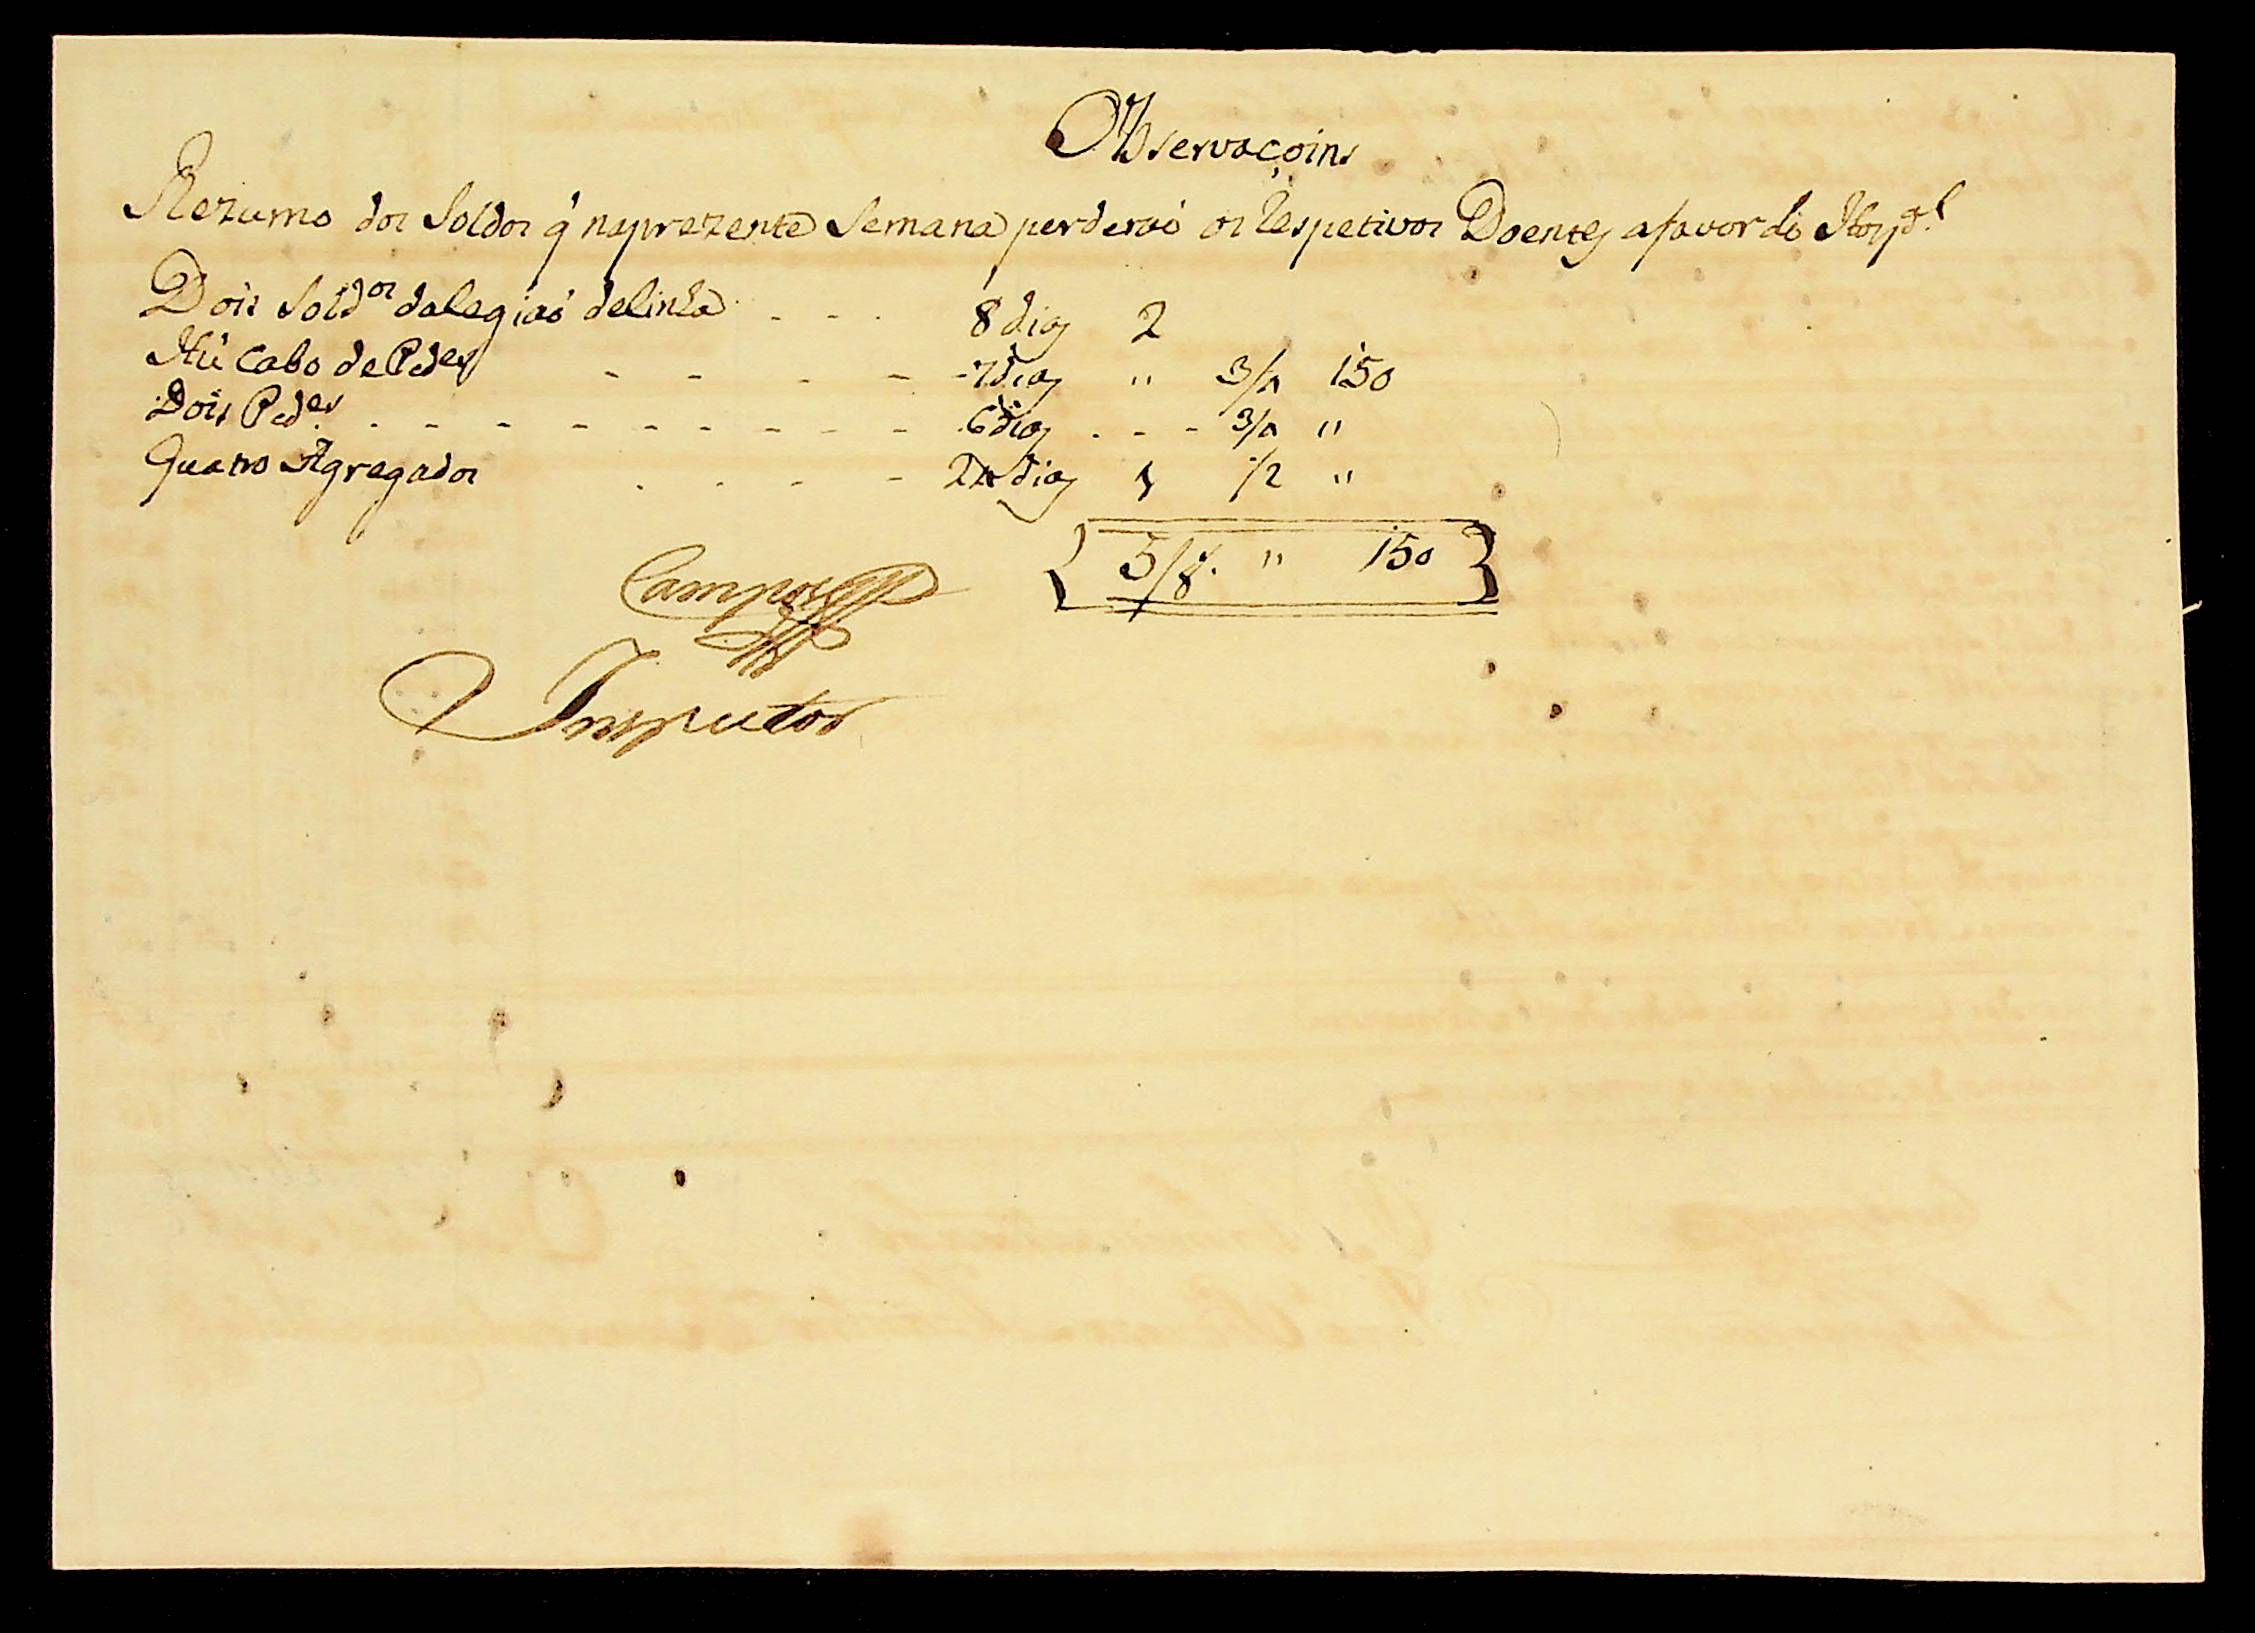 Observaçoins
Rezumo dos Soldos q̃ naprezente Semana perderaó os Respetivos Doentes afavor do Hospd.l
Dois Sold.os dalegiaó delinha . - - . 8 dias 2
Hũ Cabo de Ped.es - - - - - 7 dias " 3/4 150
Dois Ped.es . - - - - - - - - - 6 dias . - - - 3/4 "
Quatro Agregados . - - - - 24 dias 1 1/2 "
5/8.as " 150
Campos
Inspector